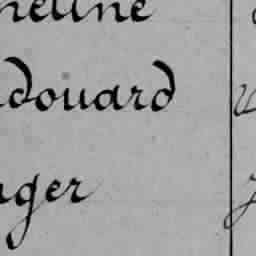 heline
douard
ger